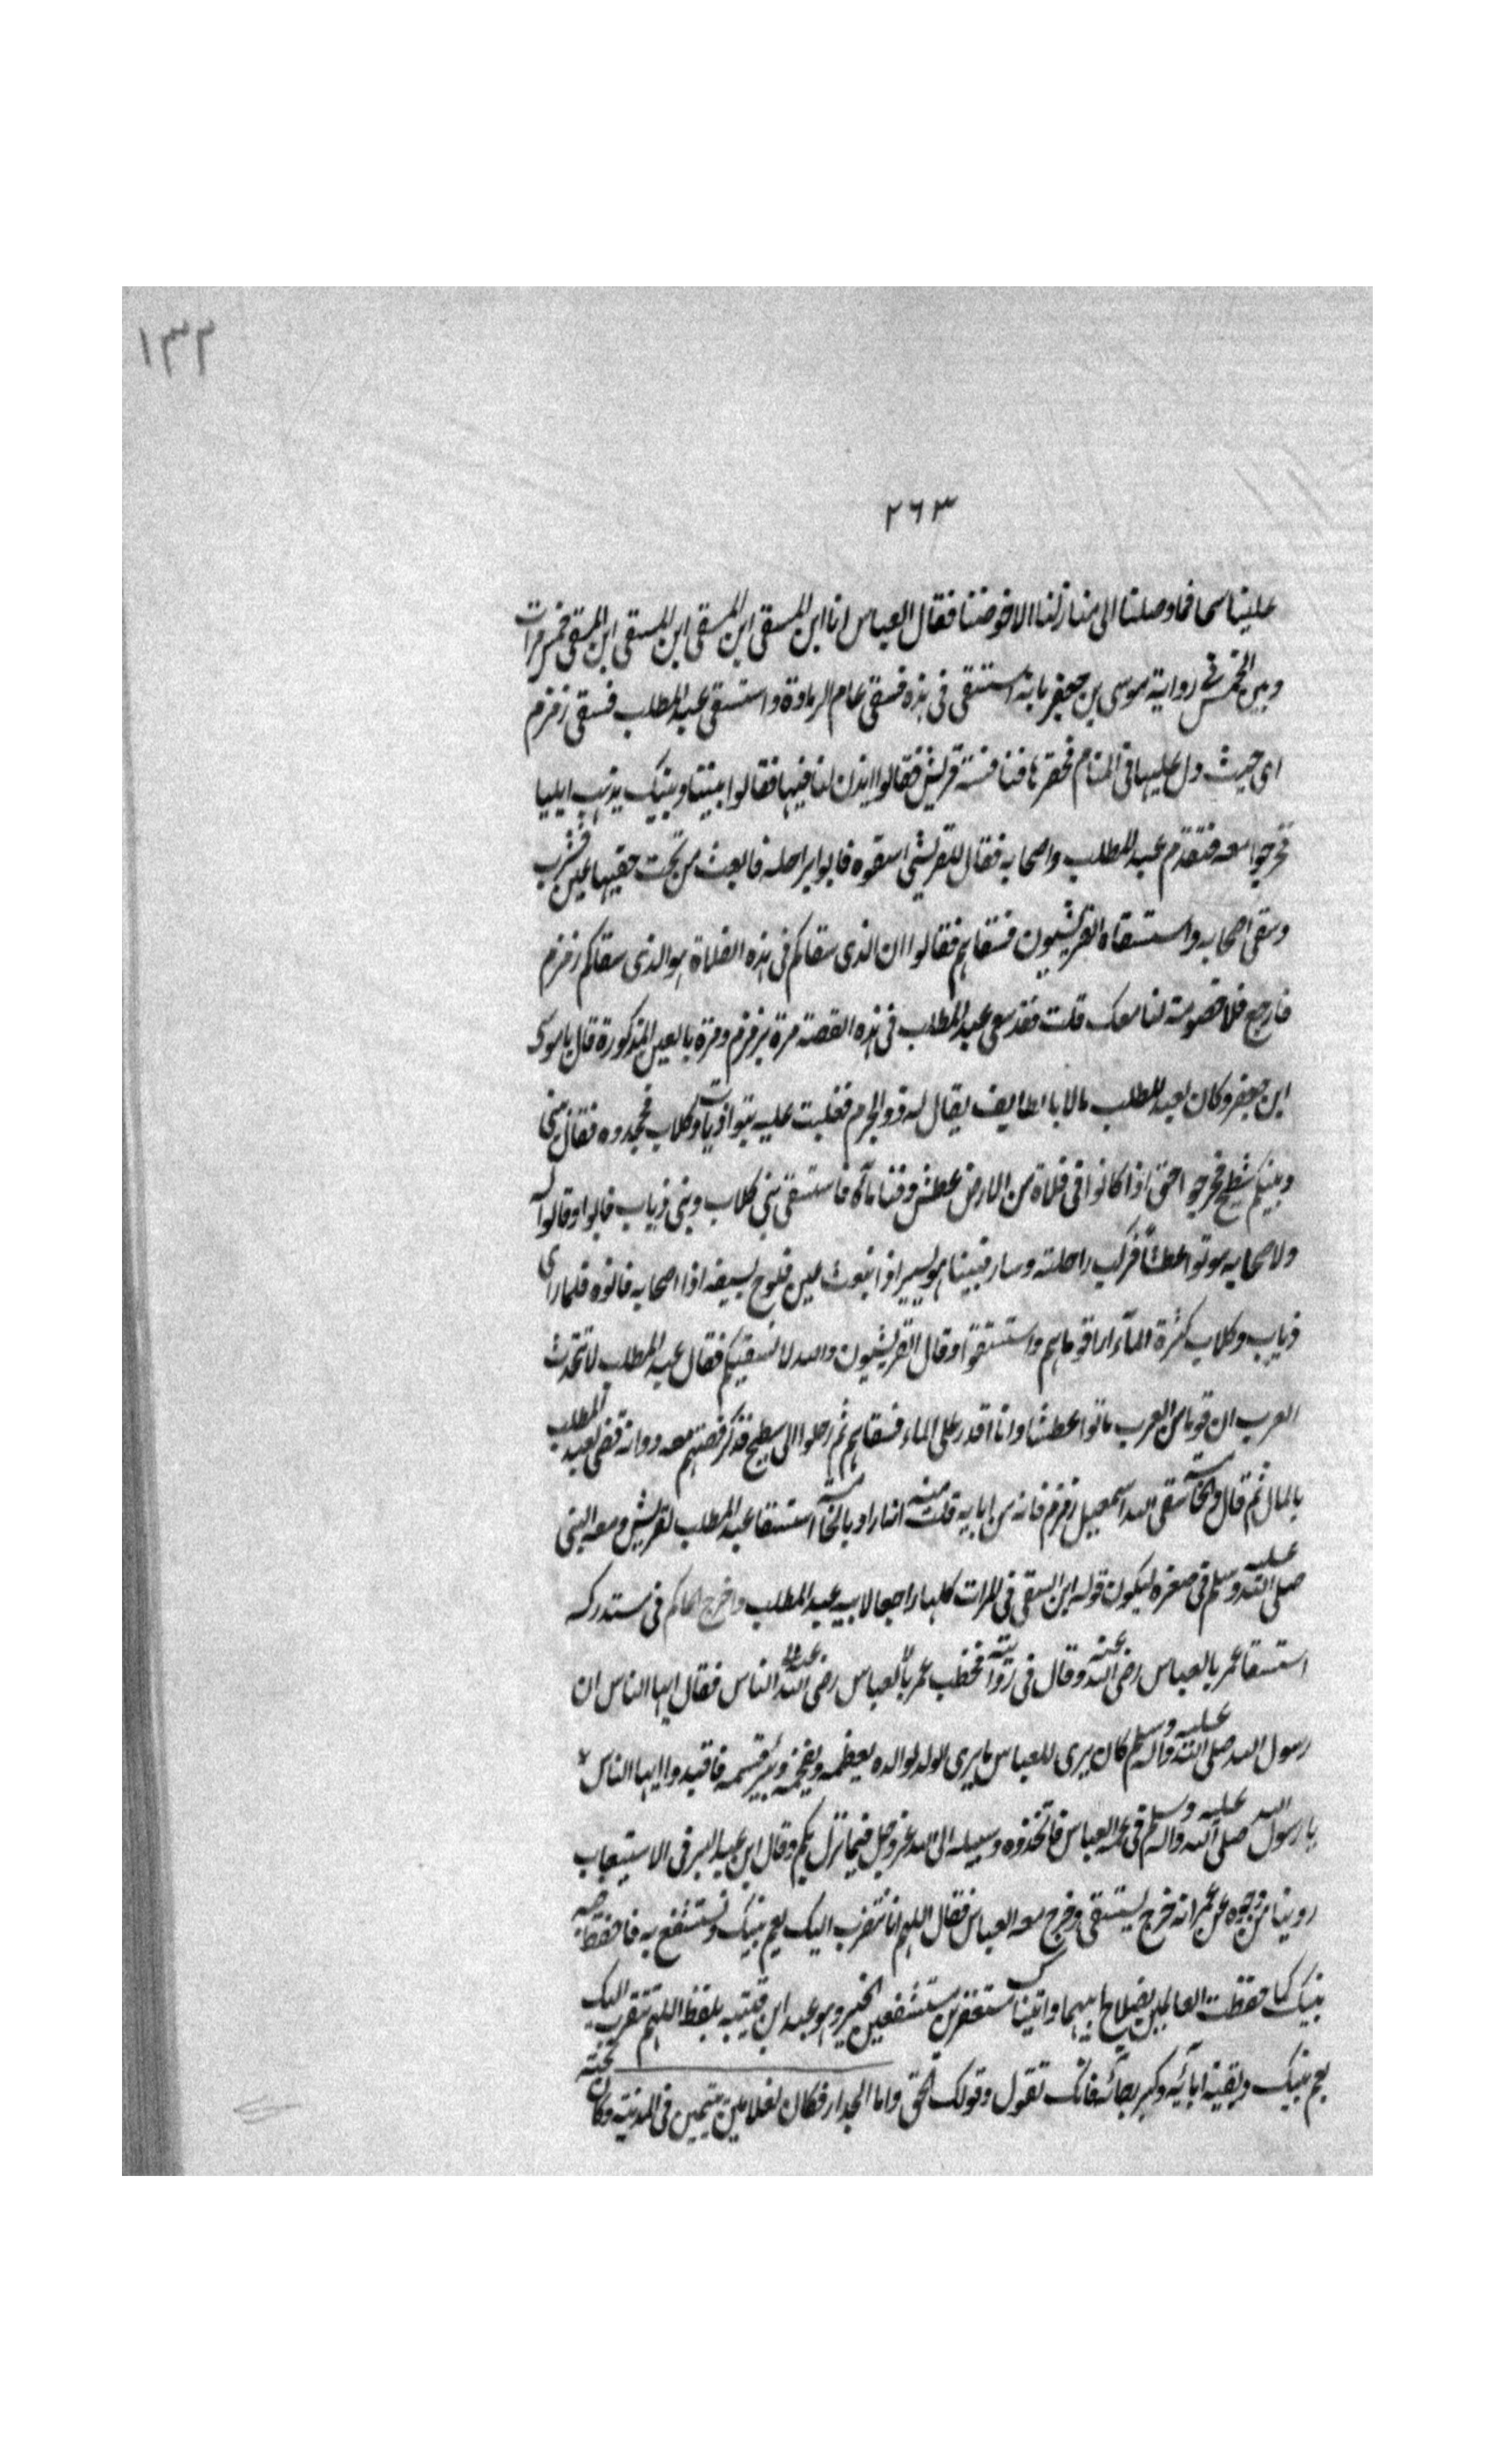 ١٣٢
٢٦٣
علينا سحا فما وصلنا الى منازلنا الا خوضنا فقال العباس انا ابن المسقى ابن المسقى ابن المسقى ابن المسقى خمس مرات
وبين الخمس فى رواية موسى بن جعفر بانه استسقى فى هذه فسقى عام الرمادة واستسقى عبد المطلب فسقى زمزم
اى حيث دل عليها فى المنام فحفرها فنافسته قريش فقالوا ايذن لنا فيها فقالوا بيننا وبينك راهب ايليا
فخرجوا معه فتقدم عبد المطلب واصحابه فقال للقريشى اسقوه فابوا براحلته فانبعث من تحت خفيها عين فشرب
وسقى اصحابه واستسقاه القريشيون فسقاهم فقالوا ان الذى سقاكم فى هذه الفلاة هو الذى سقاكم زمزم
فارجع فلا خصومة لنا معك قلت فقد سقى عبد المطلب فى هذه القصة مرة بزمزم ومرة بالعين المذكورة قال يا موسى
ابن جعفر وكان لعبد المطلب مالا بالطايف يقال له ذو الهرم فغلبت عليه بنوا ذياب وكلاب فجحدوه فقال بينى
وبينكم سطيح فخرجوا حتى اذا كانوا فى فلاة من الارض عطش وفنا ماؤه فاستسقى بنى كلاب وبنى ذياب فابوا وقالوا له
ولاصحابه موتوا عطشا فركب راحلته وسار فبينا هو يسير اذا نبعت عين فلوح بسيفه اذا اصحابه فاتوه فلما راى
ذياب وكلاب كثرة الماء اراقوا ماهم واستسقوا وقال القريشيون والله لا نسقيكم فقال عبد المطلب لا تحدث
العرب ان قوما من العرب ماتوا عطشا وانا اقدر على الماء فسقاهم ثم رحلوا الى سطيح فذكر قصتهم معه وانه قضى لعبد المطلب
بالمال ثم قال والخامسة سقى الله اسمعيل زمزم فانه من ابايه قلت منه انما اراد بالخامسة استسقا عبد المطلب لقريش ومعه النبى
صلى الله عليه وسلم فى صغره ليكون قوله ابن المسقى فى المرات كلها راجعا لابيه عبد المطلب واخرج الحاكم فى مستدركه
استسقا عمر بالعباس رضى الله عنه وقال فى روايته فخطب عمر بالعباس رضى الله عنه الناس فقال ايها الناس ان
رسول الله صلى الله عليه واله وسلم كان يرى للعباس ما يرى الولد لوالده يعظمه ويفخمه ويبر قسمه فاقتدوا ايها الناس
يا رسول الله صلى الله عليه واله وسلم فى عمه العباس فاتخذوه وسيلة الى الله عز وجل فيما نزل بكم وقال ابن عبد البر فى الاستيعاب
روينا من وجوه عن عمر انه خرج يستسقى وخرج معه العباس فقال اللهم انا نتقرب اليك بعم نبيك ونستشفع به فاحفظ فيه
نبيك كما حفظت الغلامين بصلاح ابيهما واتيناك مستغفرين مستشفعين الخبر وهو عند ابن قتيبه بلفظ اللهم نتقرب اليك
بعم نبيك وبقية ابائه وكبر رجاله فانك تقول وقولك الحق واما الجدار فكان لغلامين يتيمين فى المدينة وكان تحته